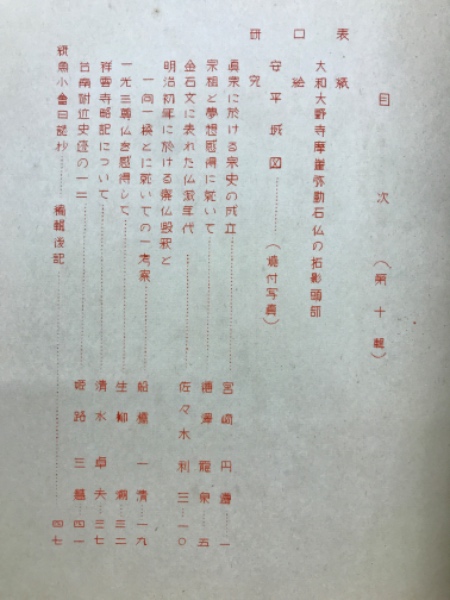 目次（第十輯）
表紙
大和大野寺摩崖弥勒石仏の拓影頭部
口絵
安平城図………（焼付写真）
研究
眞宗に於ける宗史の成立………宮崎円遵…一
宗祖と夢想感得に就いて………禿澤龍泉…五
金石文に表れた仏滅年代………佐々木利三…一〇
明治初年に於ける廃仏毀釈と
一向一揆とに就いての一考察………船橋一清…一九
一光三尊仏を感得して………生柳潮…三二
祥雲寺略記について………清水卓夫…三七
台南附近史蹟の一二………姫路三慧…四一
小會日誌抄………編輯後記………四七